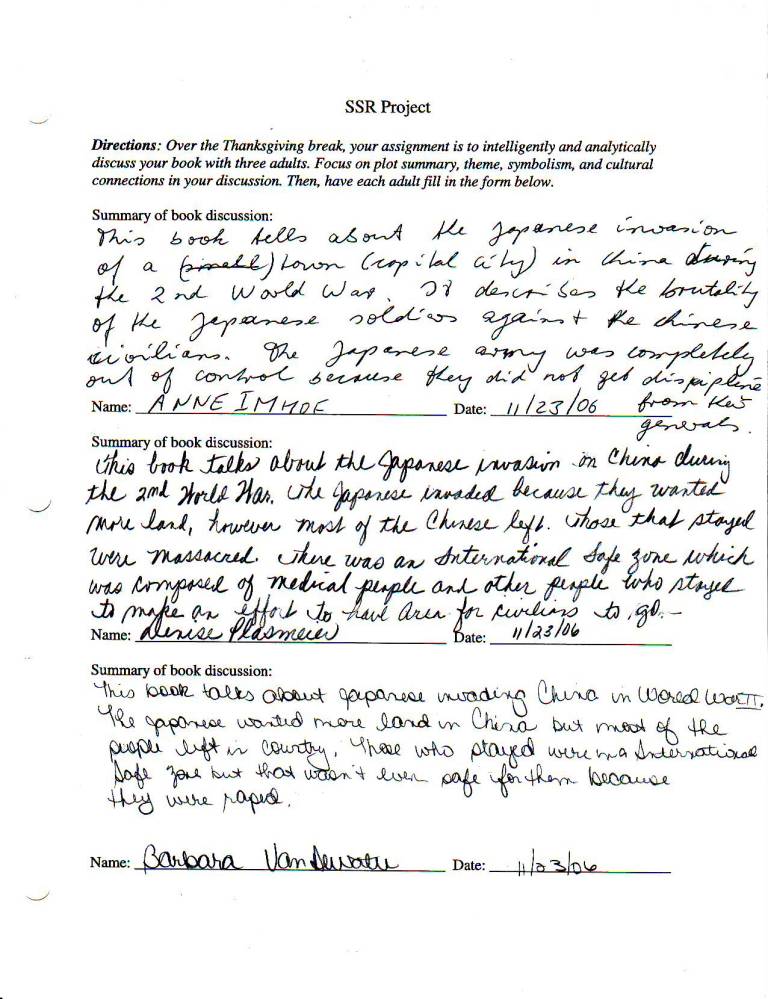 SSR Project
Directions: Over the Thanksgiving break, your assignment is to intelligently and analytically
discuss your book with three adults. Focus on plot summary, theme, symbolism, and cultural
connections in your discussion. Then, have each adult fill in the form below.
Summary of book discussion:
This book tells about the Japanese invasion
of a (small) town (capital city) in China during
the 2nd World War. It describes the brutality
of the Japanese soldiers against the chinese
civilians. The Japanese army was completely
out of control because they did not get dispipline
from their
generals.
Name: ANNE IMHOF Date: 11/23/06
Summary of book discussion:
This book talks about the Japanese invasion on China during
the 2nd World War. The Japanese invaded because they wanted
more land, however most of the Chinese left. Those that stayed
were massacred. There was an International Safe zone which
was composed of medical people and other people who stayed
to make an effort to have area for civilians to go.-
Name: Denise Plasmeier Date: 11/23/06
Summary of book discussion:
This book talks about Japanese invading China in World War II.
The Japanese wanted more land in China but most of the
people left in country. Those who stayed were in a International
Safe zone but that wasn't even safe for them because
they were raped.
Name: Barbara Date: 11/23/06